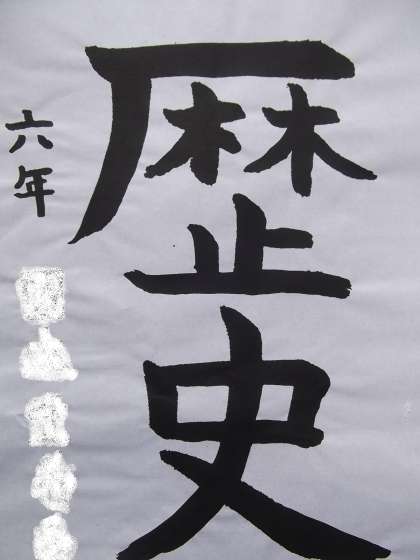 歴史
六年